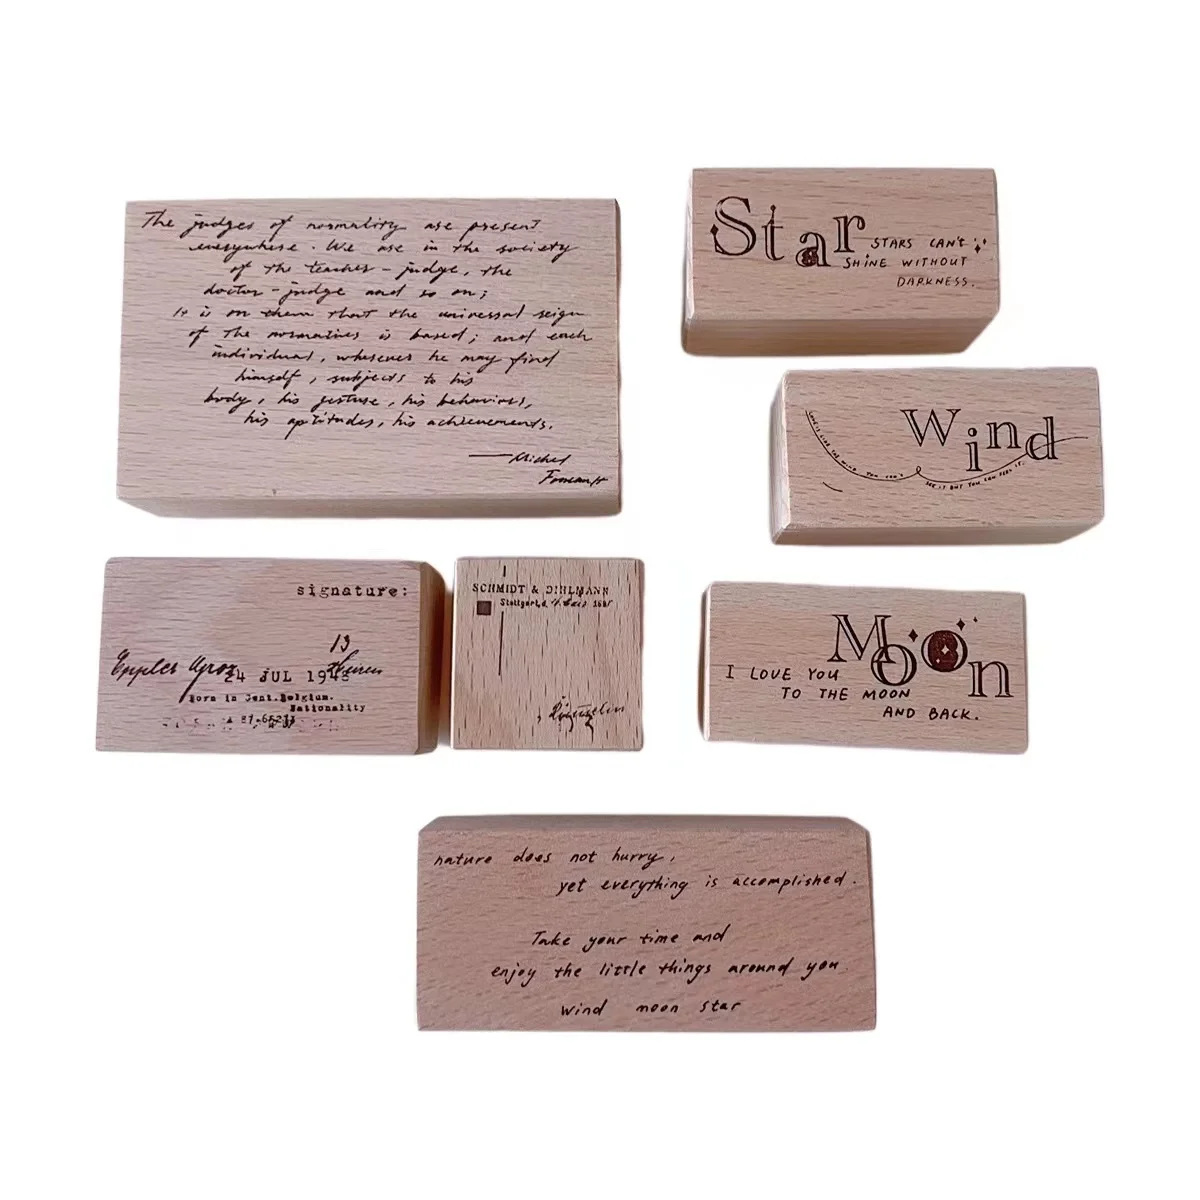 The judges of normality are present
everywhere. We are in the society
of the teacher-judge, the
doctor-judge and so on;
it is on them that the universal reign
of the normatives is based; and each
individual, wherever he may find
himself, subjects to his
body, his gesture, his behaviors,
his aptitudes, his achievements.
—Michel
Foucault
Star
STARS CAN'T
SHINE WITHOUT
DARKNESS.
Wind
LOVE IS LIKE THE WIND YOU CAN'T
SEE IT BUT YOU CAN FEEL IT.
signature:
13
24 JUL 194
Born in Gent.Belgium.
Nationality
SCHMIDT & DIHLMANN
Stuttgart,d.
Moon
I LOVE YOU
TO THE MOON
AND BACK.
nature does not hurry,
yet everything is accomplished.
Take your time and
enjoy the little things around you
wind moon star